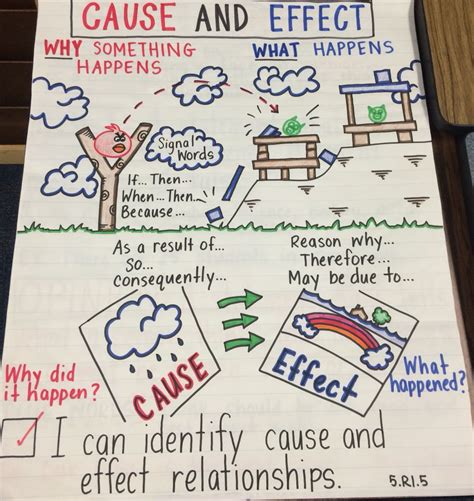 CAUSE AND EFFECT
WHY SOMETHING
HAPPENS
WHAT HAPPENS
Signal
Words
If... Then...
When... Then...
Because...
As a result of...
So...
consequently...
Reason why...
Therefore...
May be due to...
Why did
it happen?
CAUSE
Effect
What
happened?
I can identify cause and
effect relationships.
5.RI.5